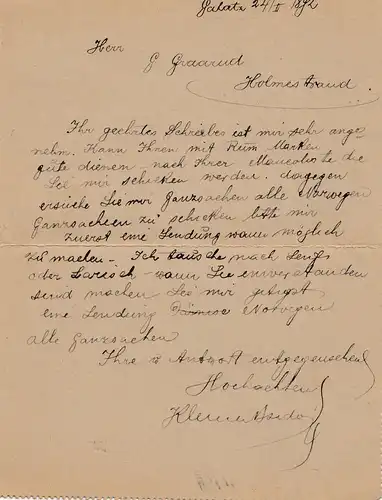 Galatz 24/II 1892
Herr
G Graarud
Holmestrand
Ihr geehrtes Schreiben ist mir sehr ange-
nehm. Kann Ihnen mit Rum Marken
gute dienen nach Ihrer Mancoliste die
Sie mir schicken werden. dagegen
ersuche Sie mir Ganzsachen alle Norwegen
Ganzsachen zu schicken bitte mir
zuerst eine Sendung wann möglich
zu machen - Ich tausche nach Senfs
oder - wann Sie einverstanden
sind machen Sie mir gefigst
eine Sendung Norvegen
alle Ganzsachen
Ihre Antwort entgegensehen
Hochachten